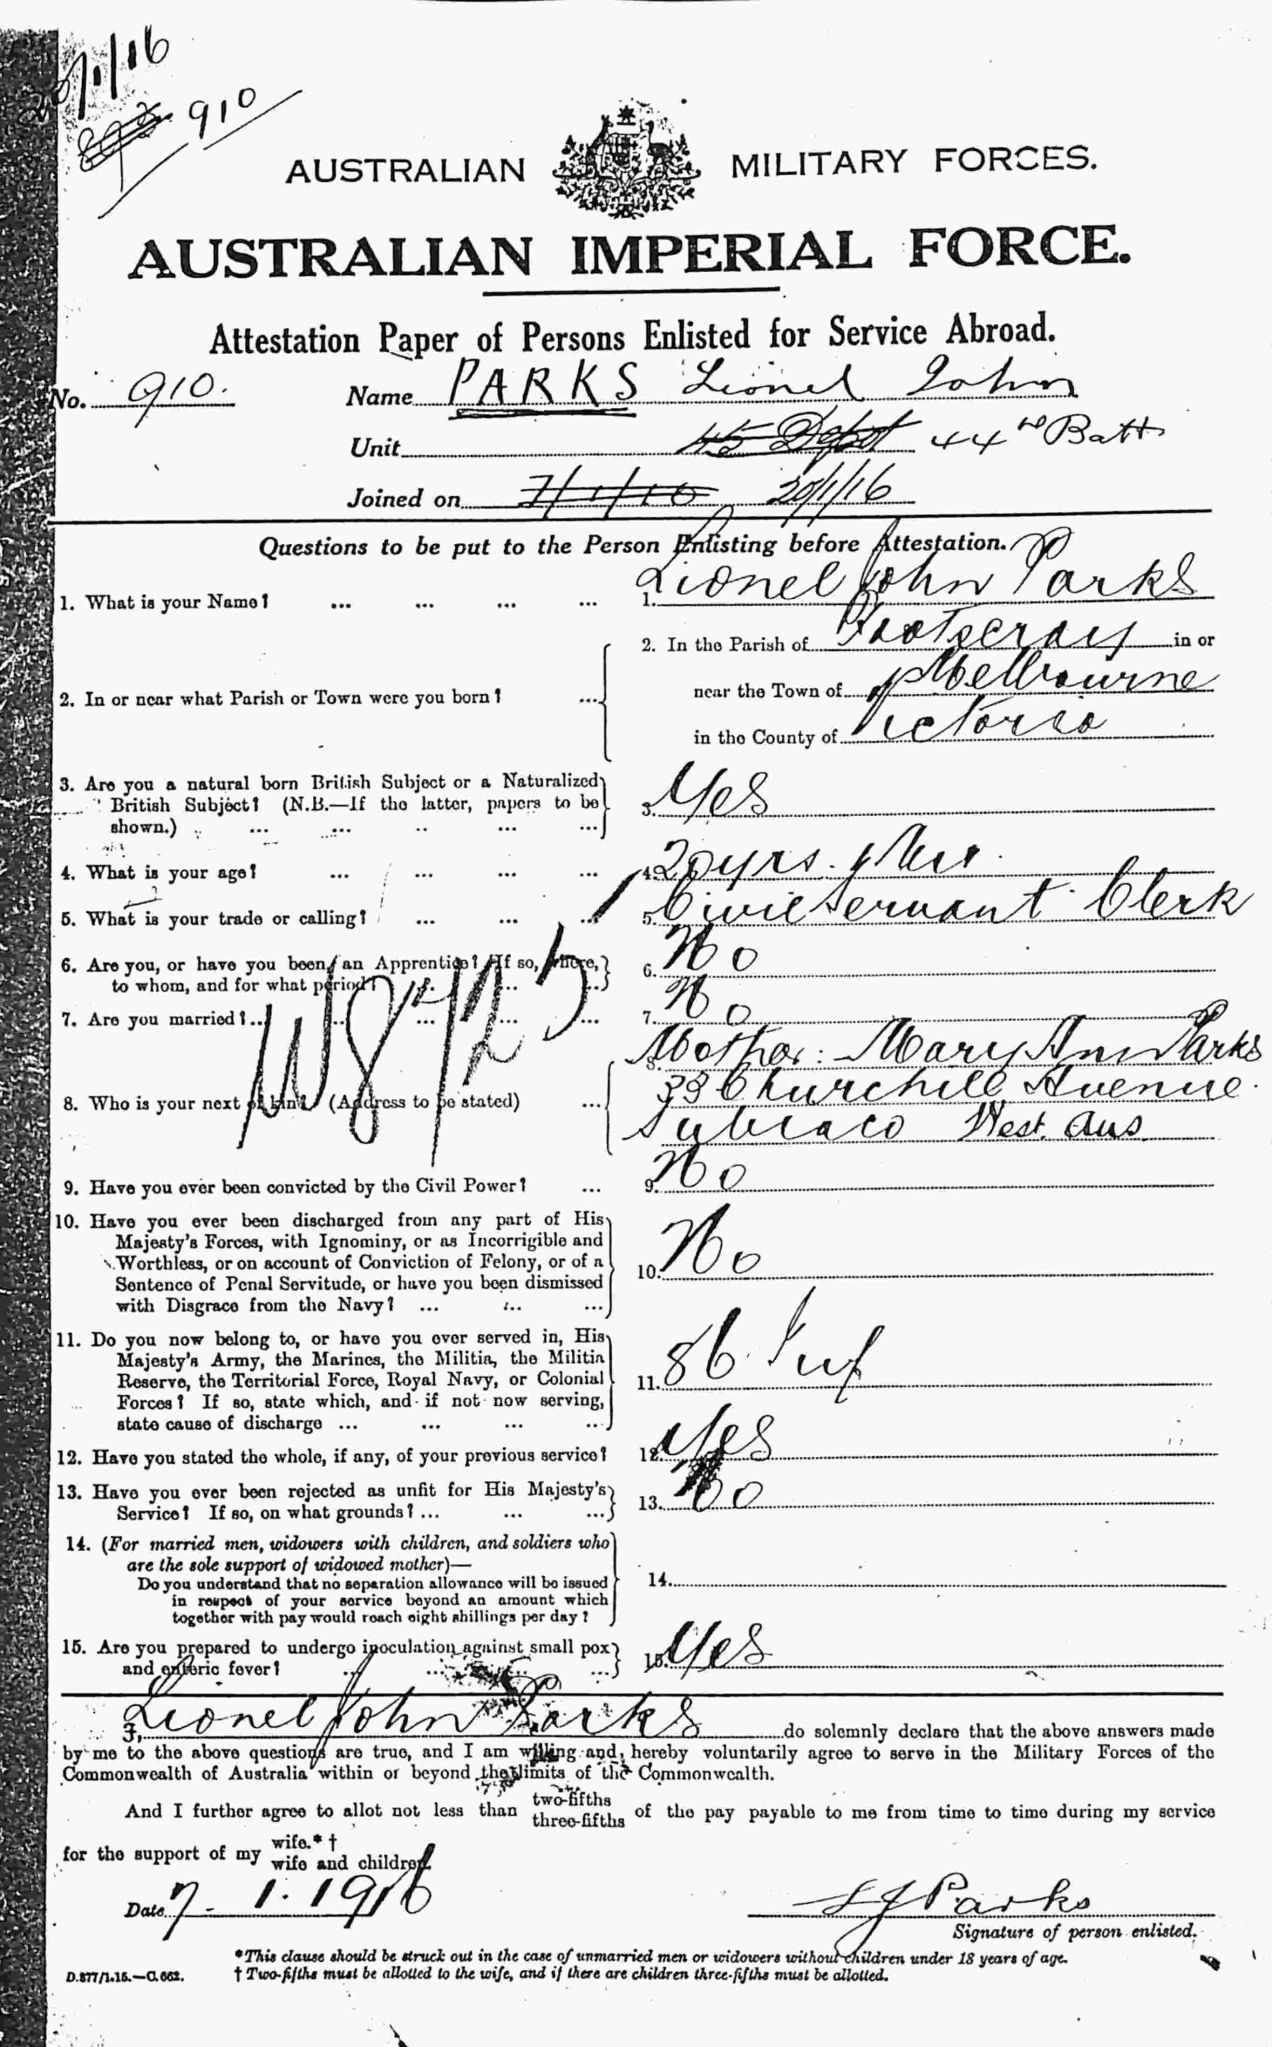 20/1/16
910
AUSTRALIAN MILITARY FORCES.
AUSTRALIAN IMPERIAL FORCE.
Attestation Paper of Persons Enlisted for Service Abroad.
No. 910. Name PARKS Lionel John
Unit 45 Depot 44th Batt
Joined on 7/1/16 20/1/16
Questions to be put to the Person Enlisting before Attestation.
1. What is your Name? ... ... ... ... 1. Lionel John Parks
2. In or near what Parish or Town were you born? ... 2. In the Parish of Footscray in or
near the Town of Melbourne
in the County of Victoria
3. Are you a natural born British Subject or a Naturalized
British Subject? (N.B.—If the latter, papers to be
shown.) ... ... ... ... ... 3. Yes
4. What is your age? ... ... ... ... 4. 20 yrs.
5. What is your trade or calling? ... ... ... 5. Civil Servant Clerk
6. Are you, or have you been, an Apprentice? If so, where,
to whom, and for what period? ... ... ... 6. No
7. Are you married? ... ... ... ... ... 7. No
8. Who is your next of kin? (Address to be stated) ... 8. Mother: Mary Ann Parks
33 Churchill Avenue
Subiaco West. Aus
W8425
9. Have you ever been convicted by the Civil Power? ... 9. No
10. Have you ever been discharged from any part of His
Majesty's Forces, with Ignominy, or as Incorrigible and
Worthless, or on account of Conviction of Felony, or of a
Sentence of Penal Servitude, or have you been dismissed
with Disgrace from the Navy? ... ... ... 10. No
11. Do you now belong to, or have you ever served in, His
Majesty's Army, the Marines, the Militia, the Militia
Reserve, the Territorial Force, Royal Navy, or Colonial
Forces? If so, state which, and if not now serving,
state cause of discharge ... ... ... ... 11. 86 Inf
12. Have you stated the whole, if any, of your previous service? 12. Yes
13. Have you ever been rejected as unfit for His Majesty's
Service? If so, on what grounds? ... ... ... 13. No
14. (For married men, widowers with children, and soldiers who
are the sole support of widowed mother)—
Do you understand that no separation allowance will be issued
in respect of your service beyond an amount which
together with pay would reach eight shillings per day? 14.
15. Are you prepared to undergo inoculation against small pox
and enteric fever? ... ... ... ... 15. Yes
I, Lionel John Parks do solemnly declare that the above answers made
by me to the above questions are true, and I am willing and hereby voluntarily agree to serve in the Military Forces of the
Commonwealth of Australia within or beyond the limits of the Commonwealth.
And I further agree to allot not less than two-fifths
three-fifths of the pay payable to me from time to time during my service
for the support of my wife.*†
wife and children.
Date 7-1.1916 L J Parks
Signature of person enlisted.
*This clause should be struck out in the case of unmarried men or widowers without children under 18 years of age.
D.877/1.15.—C.662. † Two-fifths must be allotted to the wife, and if there are children three-fifths must be allotted.